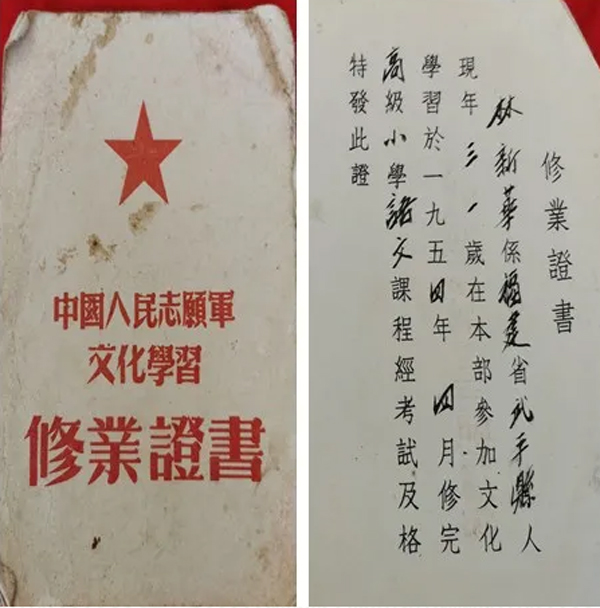 中國人民志願軍
文化學習
修業證書
修業證書
林新華係福建省武平縣人
現年三一歲在本部參加文化
學習於一九五四年四月修完
高級小學語文課程經考試及格
特發此證